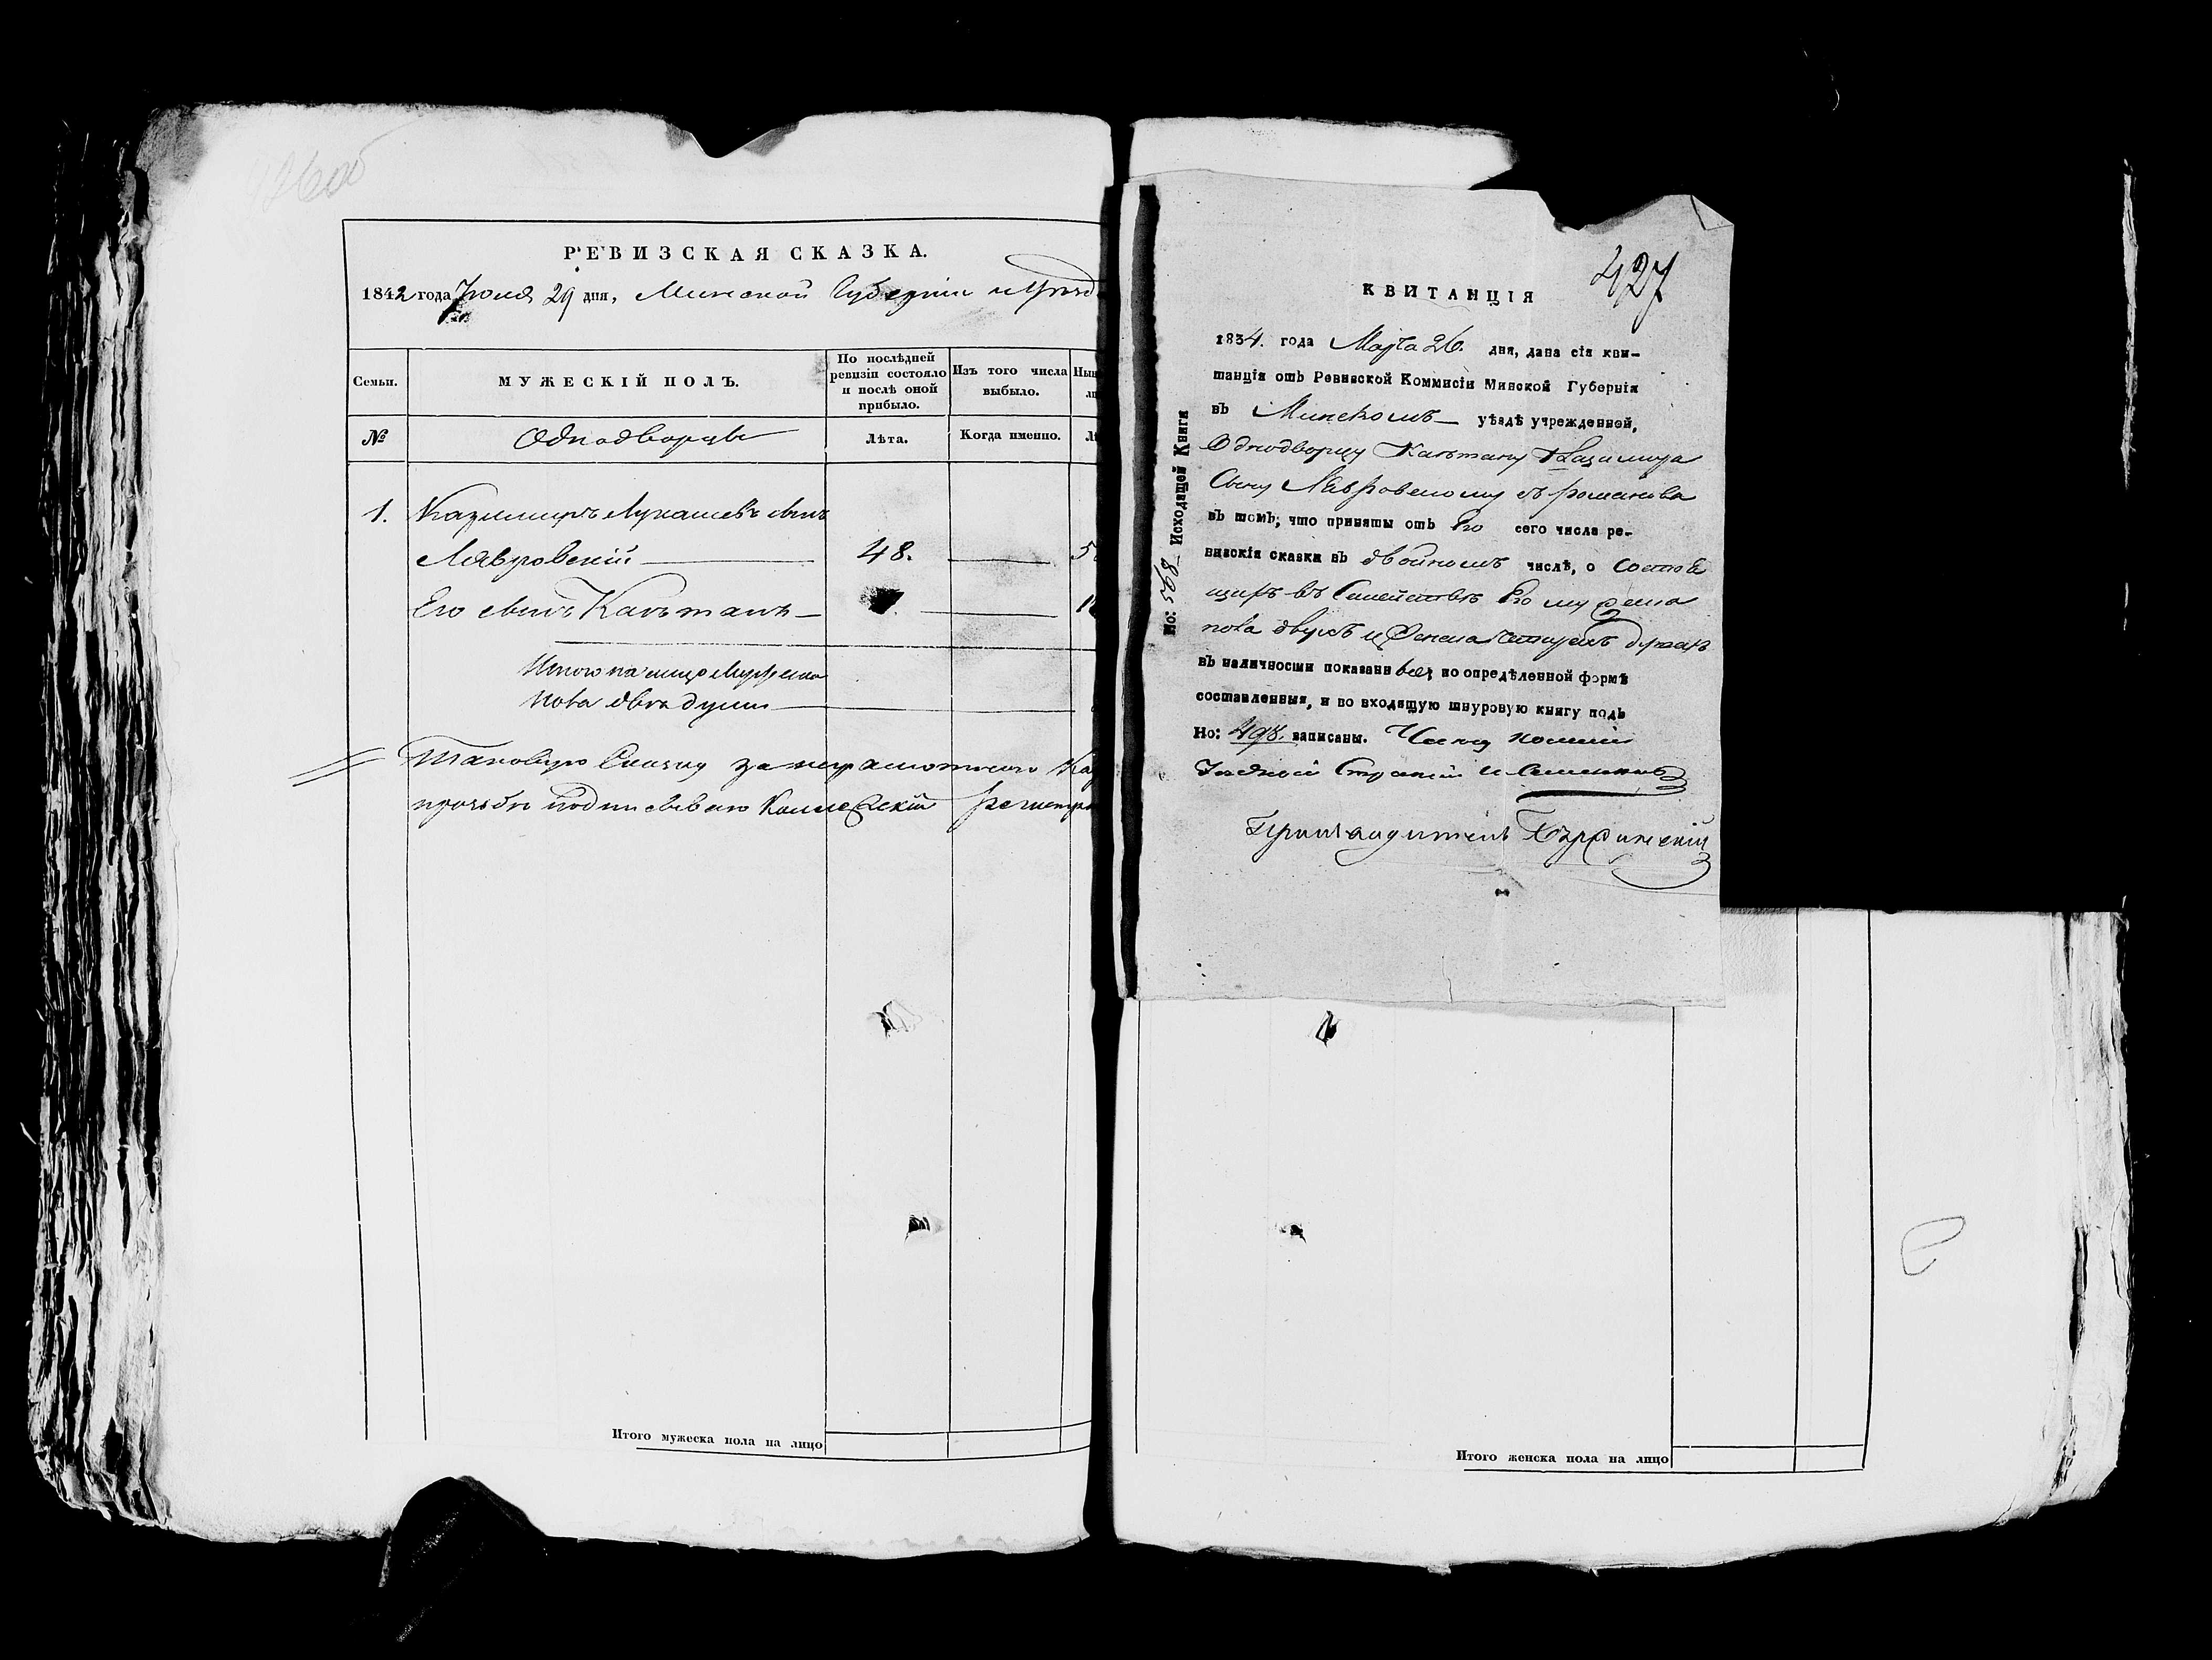 426об
РЕВИЗСКАЯ СКАЗКА.
1842 года Июня 29 дня, Минской Губернии и Уѣзд
Семьи.
МУЖЕСКІЙ ПОЛЪ.
По послѣдней ревизіи состояло и послѣ оной прибыло.
Изъ того числа выбыло.
№
Однодворцы
Лѣта.
Когда именно.
1. Казимиръ Лукашевъ сынъ
Лавровскій 48. 5
Его сынъ Каэтанъ 1
Итого на лицо мужеска
пола двѣ души
Таковую Сказку за неграмотного Каз
прозьбою подписываю Коллежскій регистра
Итого мужеска пола на лицо
427
КВИТАНЦІЯ
1834. года Марта 26. дня, дана сія кви-
танція отъ Ревизской Коммисіи Минской Губерніи
въ Минскомъ уѣздѣ учрежденной,
Однодворцу Каэтану Казимира
Сыну Лавровскому
въ томъ, что приняты отъ Его сего числа ре-
визскія сказки въ двойномъ числѣ, о состоя
щихъ въ Семействѣ Его мужеска
пола двухъ и женска четырехъ душахъ
въ наличности показанны все, по опредѣленной формѣ
составленныя, и во входящую шнуровую книгу подъ
Но: 498. записаны. Членъ
Но: 568 Исходящей Книги
Итого женска пола на лицо